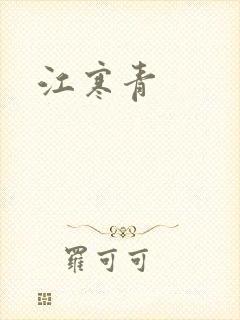 江寒青
羅可可